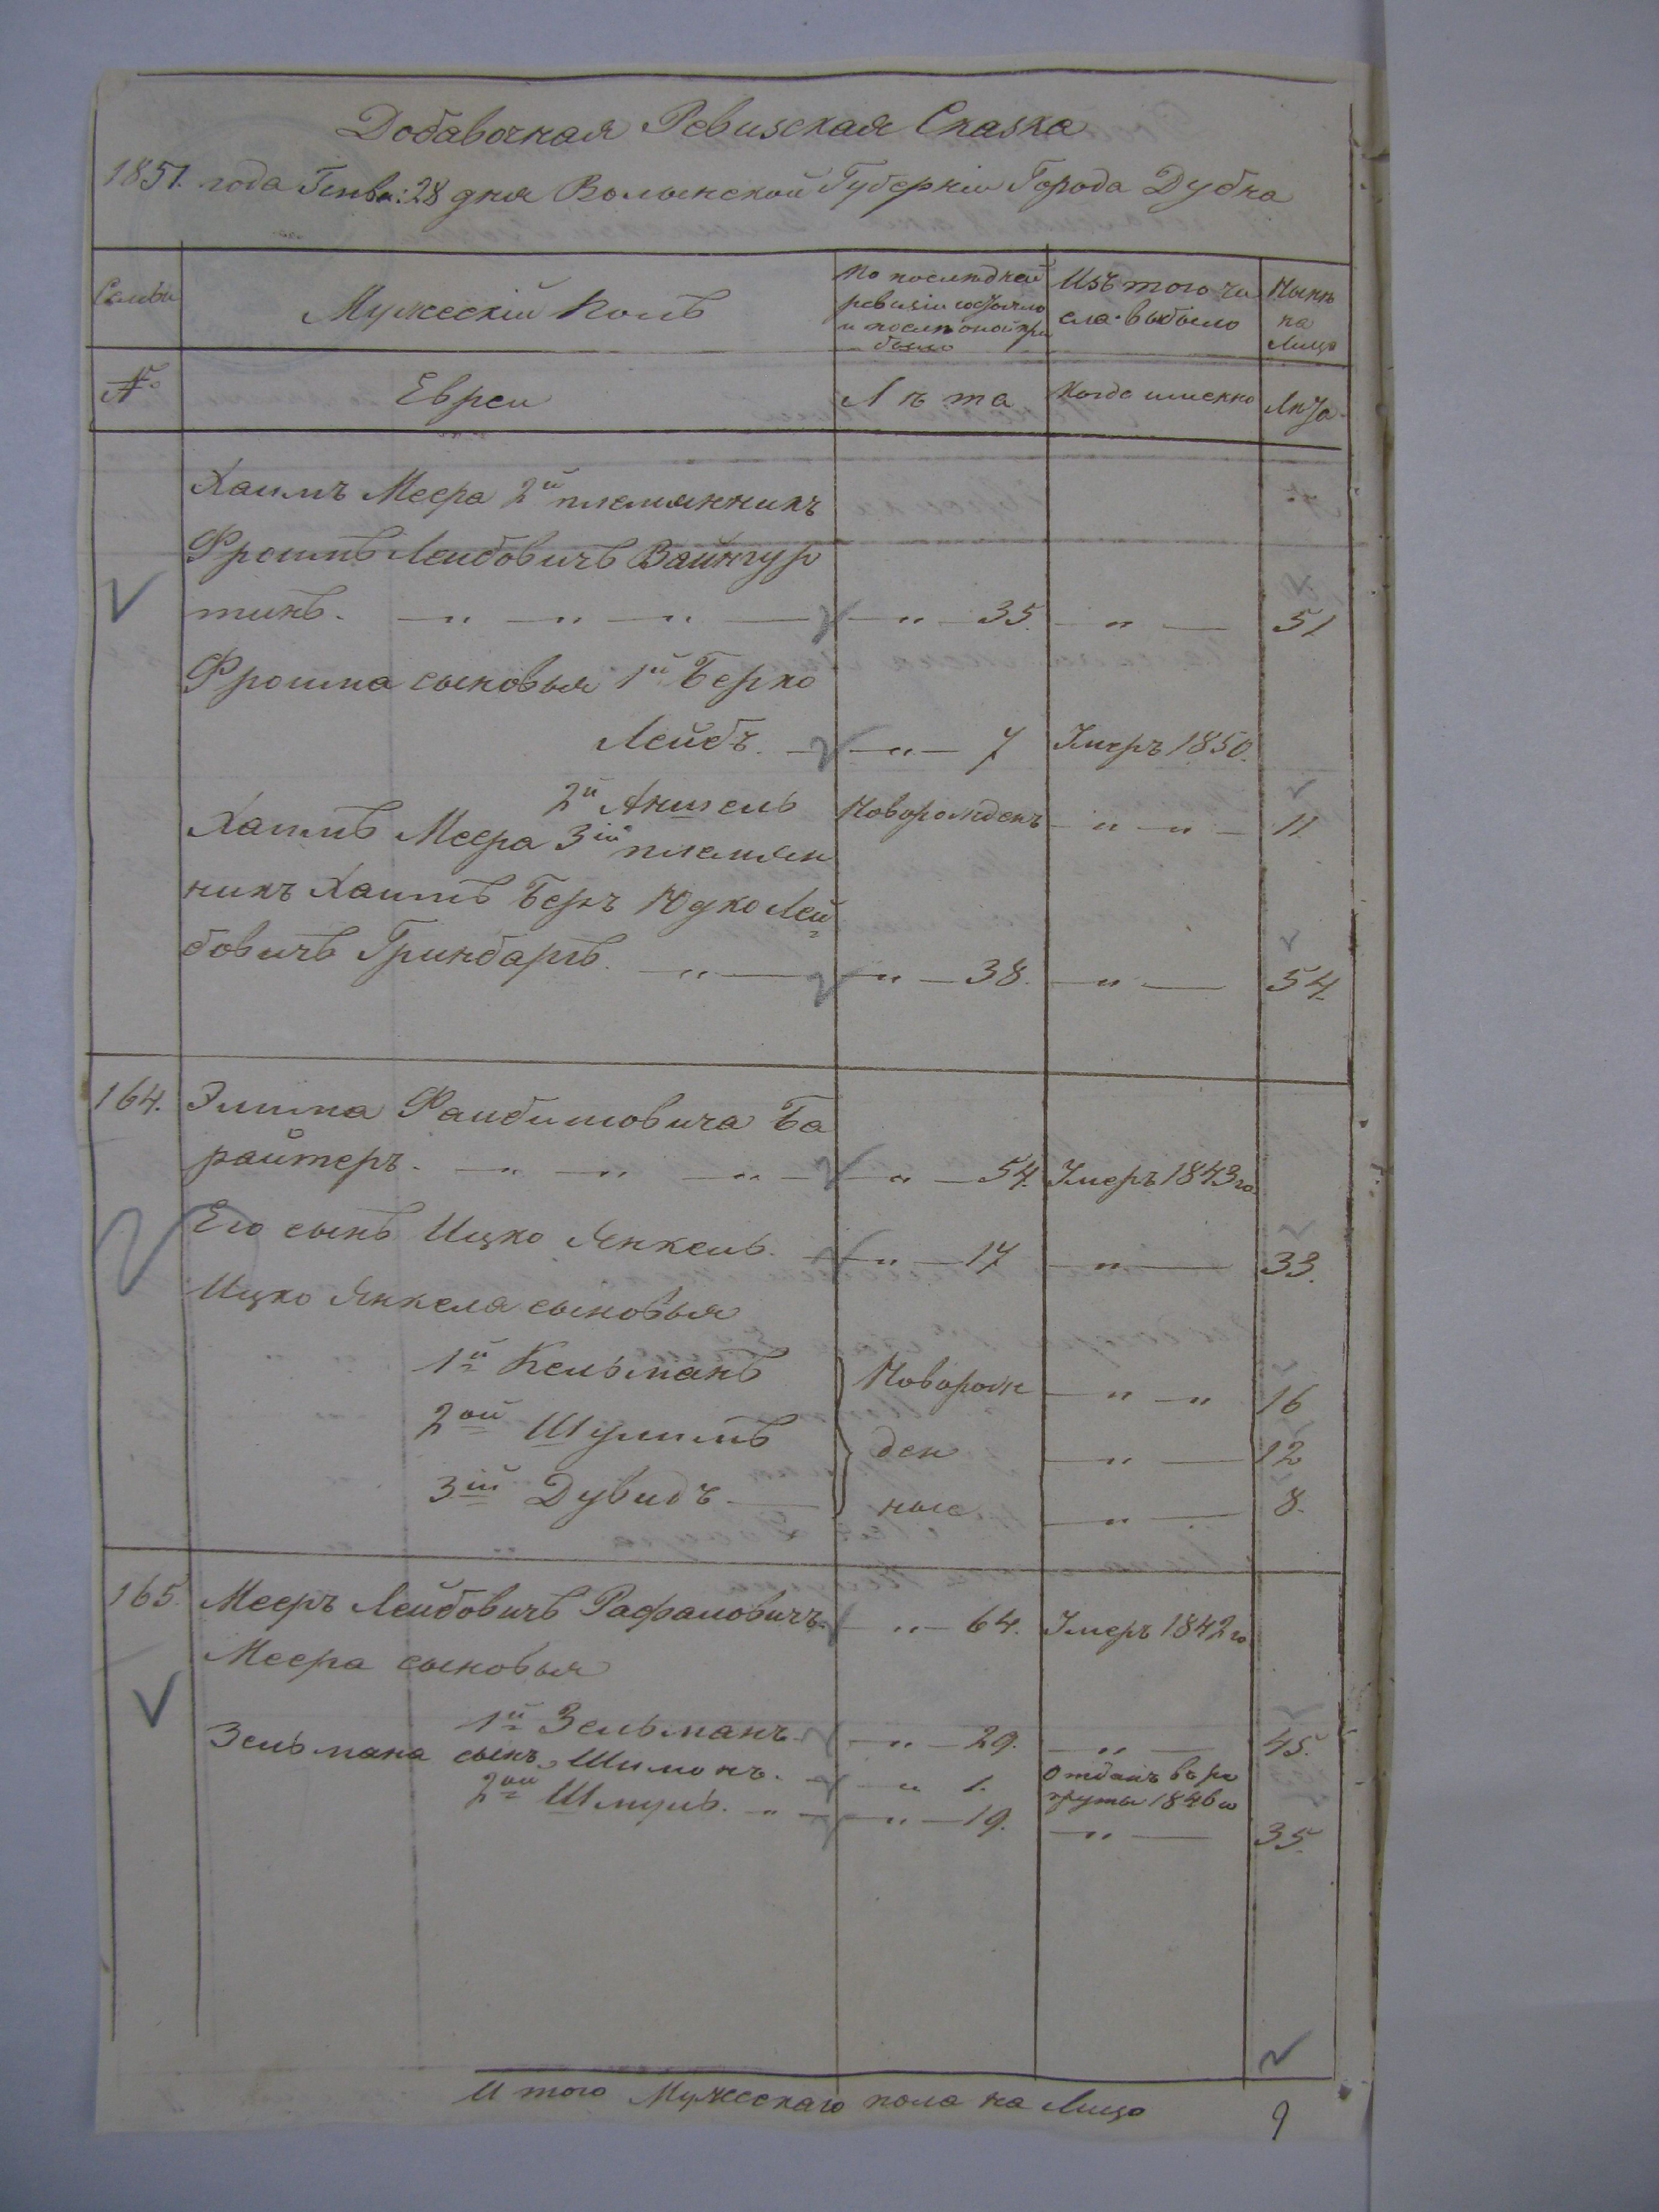 Добавочная Ревизская Сказка
1851. года Генва: 28 дня Волынской Губерніи Города Дубна
Семьи
Мужескій полъ
По последней ревизіи состояло и после оной при было
Изъ того чи сла выбыло
Ныне на Лицо
№
Евреи
Лѣта
Когда именно
Лѣта
Хаимъ Меера 2й племянникъ
Фроимъ Лейбовичъ Вайнгур
тинъ. — " — " — " — " — 35. — " — 51
Фроима сыновья 1й Берко
Лейбъ. — " — 7 Умеръ 1850.
2й Аншель Новорожденъ — " — " — 11.
Хаимъ Меера 3ій племян
никъ Хаимъ Беръ Юдко Лей=
бовичъ Гринбаргъ. — " — " — 38. — " — 54.
164. Элиша Файбишовича Ба
райтеръ. — " — " — " — " — 54. Умеръ 1843го.
Его сынъ Ицко Янкель. — " — 17 — " — 33.
Ицко Янкеля сыновья
1й Кельманъ Новорож — " — " 16
2ой Шулимъ ден — " — 12
3ій Дувидъ — ные — " — 8.
165. Мееръ Лейбовичъ Рафаловичъ. — " — 64. Умеръ 1842го
Меера сыновья
1й Зельманъ. — " — 29. — " — 45.
Зельмана сынъ Шимонъ. — " 1. Отданъ въ ре
круты 1846го
2ой Шмуль. — " — " — 19. — " — 35.
И того Мужескаго пола на Лицо 9